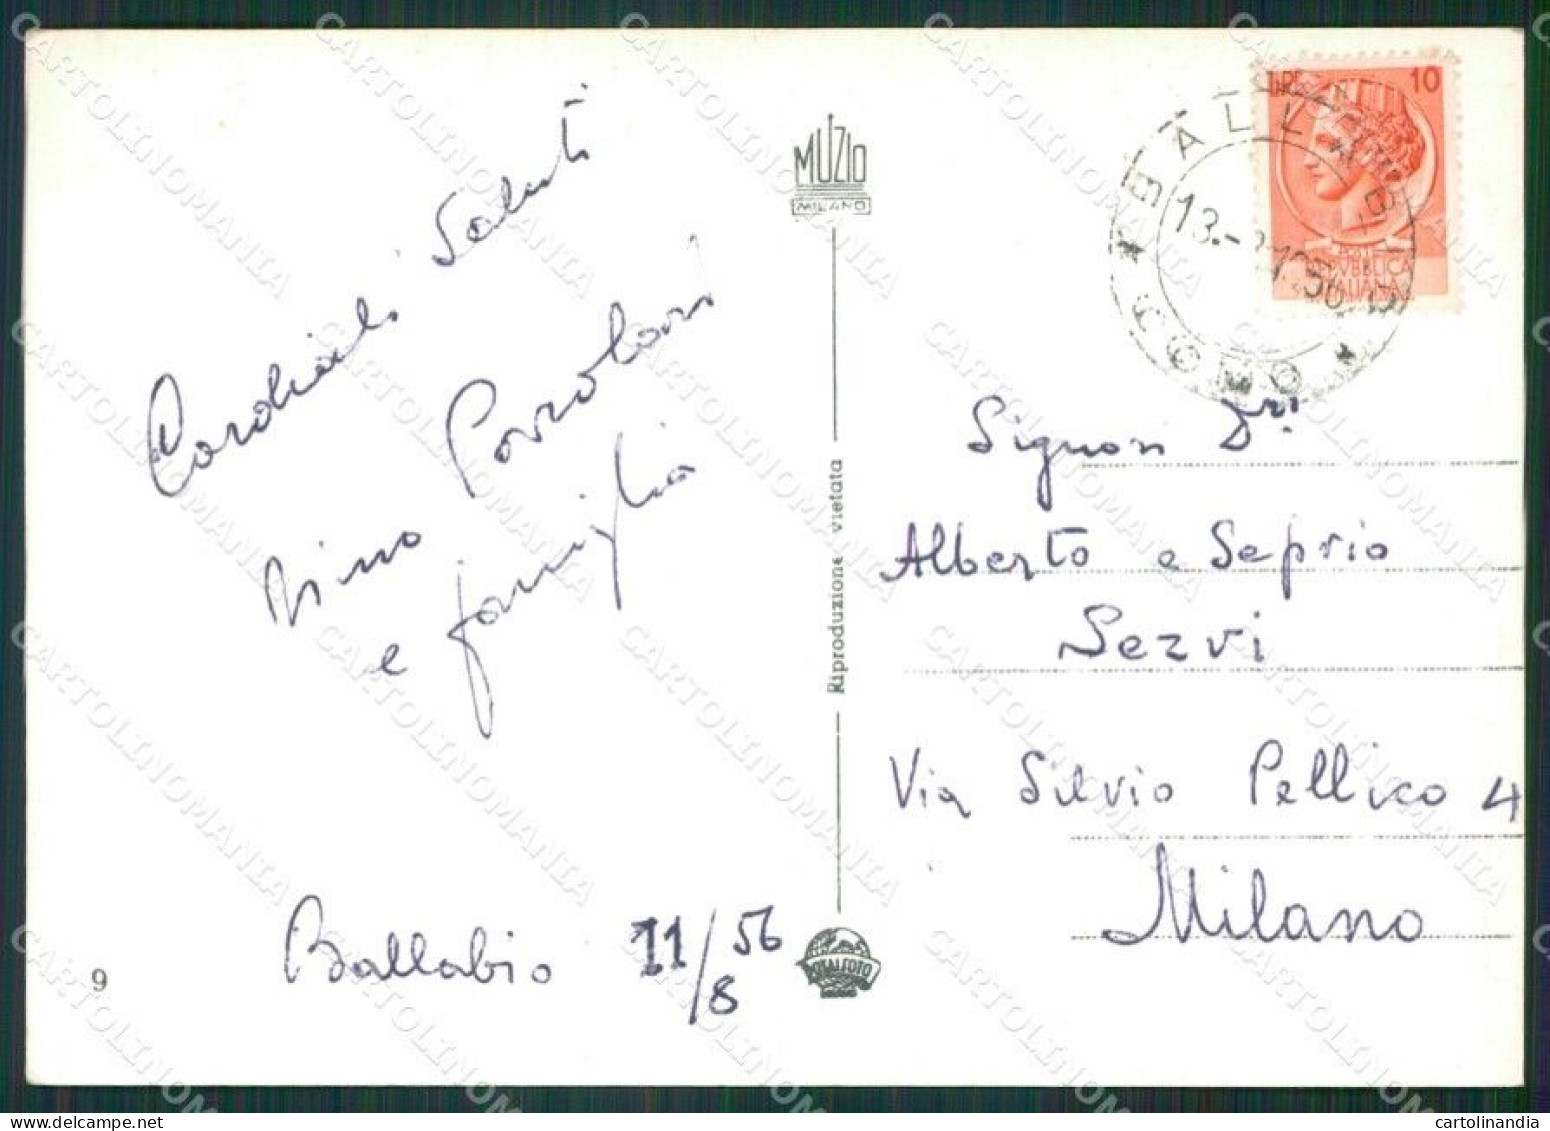 Cordiali Saluti
Nino
e famiglia
Ballabio 11/8 56
9
MUZIO
MILANO
Riproduzione vietata
LIRE 10
POSTE
REPVBBLICA
ITALIANA
BALLABIO
COMO
13.-8-1956
Signori Dri.
Alberto e Seprio
Servi
Via Silvio Pellico 4
Milano
CARTOLINOMANIA
cartolinandia